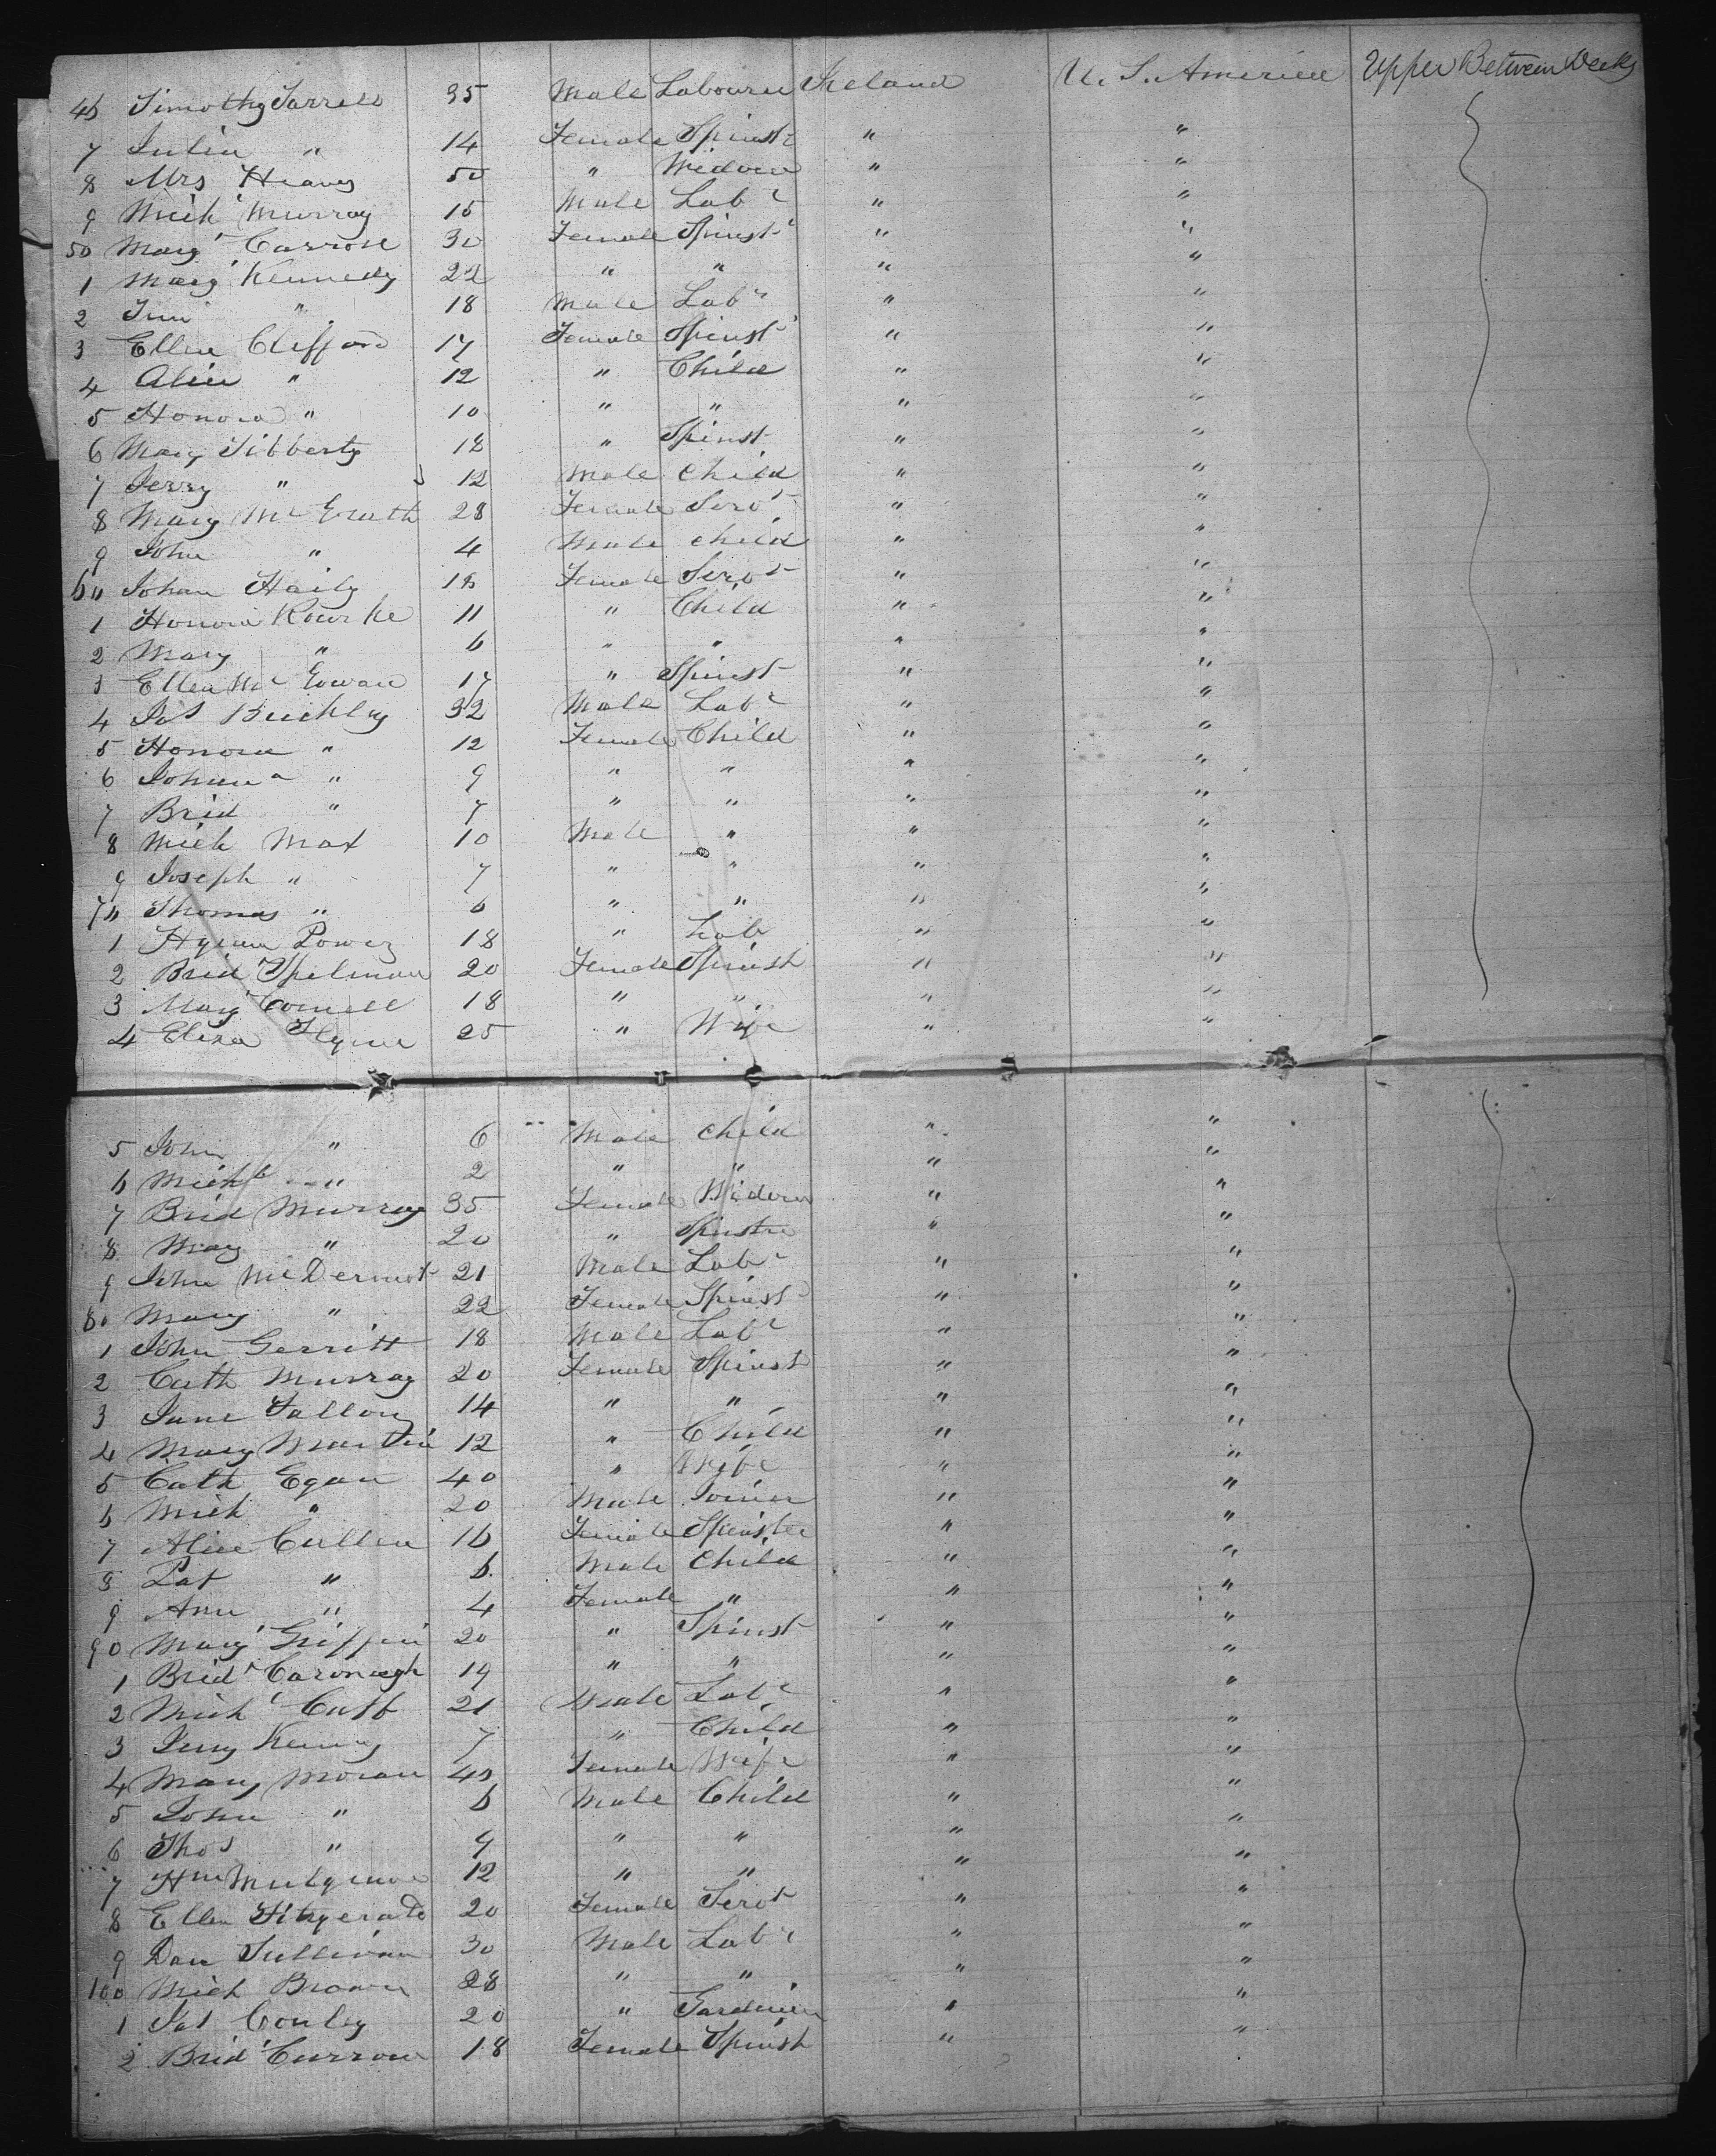 46 Timothy Farrell 35 Male Labourer Ireland U. S. America Upper Between Decks
7 Julia " 14 Female Spinstr " "
8 Mrs Heavy 50 " Widow " "
9 Mich Murray 15 Male Labr " "
50 Marg Carroll 30 Female Spinstr " "
1 Marg Kennedy 22 " " " "
2 Jim " 18 Male Labr " "
3 Ellen Clifford 17 Female Spinst " "
4 Alice " 12 " Child " "
5 Honora " 10 " " " "
6 Mary Tibberty 18 " Spinst " "
7 Jerry " 12 Male Child " "
8 Mary Mc Grath 28 Female Servt " "
9 John " 4 Male child " "
60 Johan Haily 18 Female Servt " "
1 Honora Rourke 11 " Child " "
2 Mary " 6 " " " "
3 Ellen Mc Gowan 17 " Spinst " "
4 Pat Buckley 32 Male Labr " "
5 Honora " 12 Female Child " "
6 Johanna " 9 " " " "
7 Brid " 7 " " " "
8 Mich Max 10 Male " " "
9 Joseph " 7 " " " "
70 Thomas " 6 " " " "
1 Power 18 " Lab " "
2 Brid Spelman 20 Female Spinst " "
3 Marg Connell 18 " " " "
4 Eliza Flynn 25 " Wife " "
5 John " 6 Male Child " "
6 Michl " 2 " " " "
7 Brid Murray 35 Female Widow " "
8 Mary " 20 " Spinstr " "
9 John McDermot 21 Male Labr " "
80 Mary " 22 Female Spinst " "
1 John Gerritt 18 Male Labr " "
2 Cath Murray 20 Female Spinst " "
3 Jane Fallon 14 " " " "
4 Mary Martin 12 " Child " "
5 Cath Egan 40 " Wife " "
6 Mich " 20 Male Joiner " "
7 Alice Cullen 16 Female Spinster " "
8 Pat " 6 Male Child " "
9 Ann " 4 Female " " "
90 Marg Griffin 20 " Spinst " "
1 Brid Cavonagh 19 " " " "
2 Mich Cuff 21 Male Labr " "
3 Kenny 7 " Child " "
4 Mary Moran 40 Female Wife " "
5 John " 6 Male Child " "
6 Thos " 9 " " " "
7 12 " " " "
8 Ellen Fitzgerald 20 Female Servt " "
9 Dan Sullivan 30 Male Labr " "
100 Mich Brown 28 " " " "
1 Pat Conley 20 " Gardinier " "
2 Brid Curran 18 Female Spinst " "